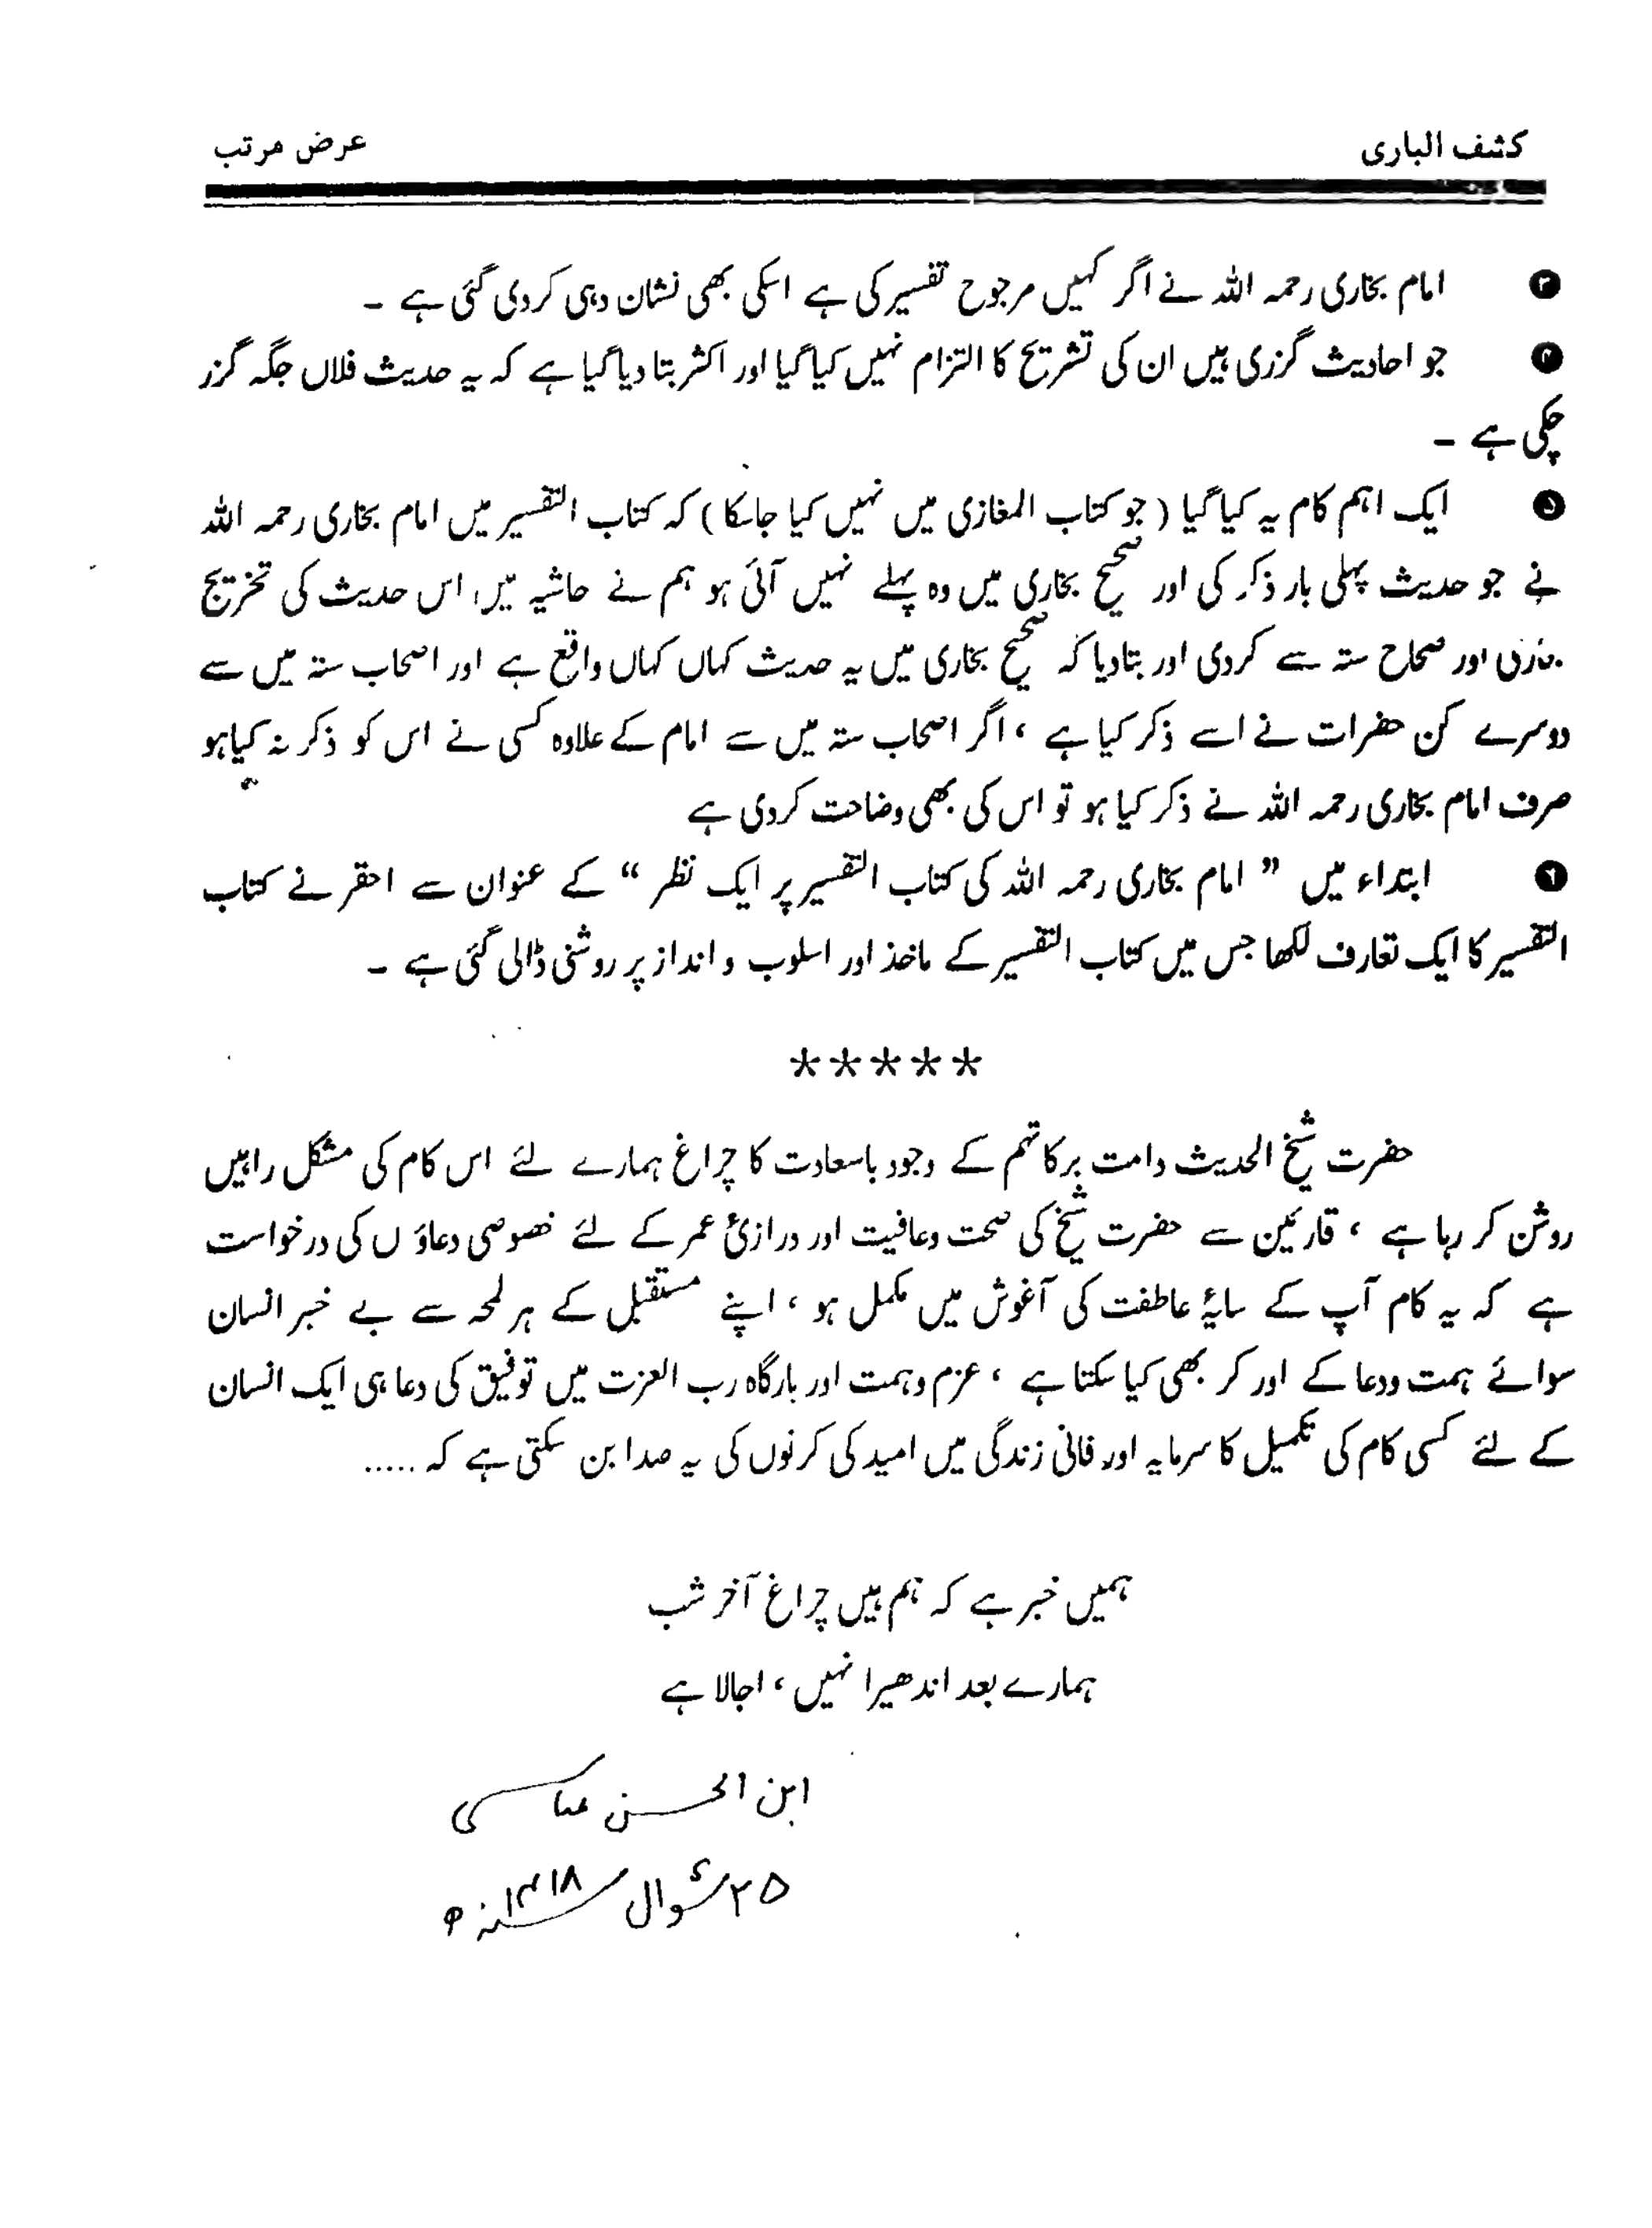 کشف الباری
عرض مرتب
❸ امام بخاری رحمہ اللہ نے اگر کہیں مرجوح تفسیر کی ہے اسکی بھی نشان دہی کردی گئی ہے ۔
❹ جو احادیث گزری ہیں ان کی تشریح کا التزام نہیں کیا گیا اور اکثر بتا دیا گیا ہے کہ یہ حدیث فلاں جگہ گزر
چکی ہے ۔
❺ ایک اہم کام یہ کیا گیا ( جو کتاب المغازی میں نہیں کیا جاسکا ) کہ کتاب التفسیر میں امام بخاری رحمہ اللہ
نے جو حدیث پہلی بار ذکر کی اور صحیح بخاری میں وہ پہلے نہیں آئی ہو ہم نے حاشیہ میں اس حدیث کی تخریج
بخاری اور صحاح ستہ سے کردی اور بتادیا کہ صحیح بخاری میں یہ حدیث کہاں کہاں واقع ہے اور اصحاب ستہ میں سے
دوسرے کن حضرات نے اسے ذکر کیا ہے ، اگر اصحاب ستہ میں سے امام کے علاوہ کسی نے اس کو ذکر نہ کیا ہو
صرف امام بخاری رحمہ اللہ نے ذکر کیا ہو تو اس کی بھی وضاحت کردی ہے
❻ ابتداء میں ” امام بخاری رحمہ اللہ کی کتاب التفسیر پر ایک نظر “ کے عنوان سے احقر نے کتاب
التفسیر کا ایک تعارف لکھا جس میں کتاب التفسیر کے ماخذ اور اسلوب و انداز پر روشنی ڈالی گئی ہے ۔
*****
حضرت شیخ الحدیث دامت برکاتہم کے وجود باسعادت کا چراغ ہمارے لئے اس کام کی مشکل راہیں
روشن کر رہا ہے ، قارئین سے حضرت شیخ کی صحت وعافیت اور درازیٔ عمر کے لئے خصوصی دعاؤں کی درخواست
ہے کہ یہ کام آپ کے سایۂ عاطفت کی آغوش میں مکمل ہو ، اپنے مستقبل کے ہر لمحہ سے بے خبر انسان
سوائے ہمت ودعا کے اور کر بھی کیا سکتا ہے ، عزم وہمت اور بارگاہ رب العزت میں توفیق کی دعا ہی ایک انسان
کے لئے کسی کام کی تکمیل کا سرمایہ اور فانی زندگی میں امید کی کرنوں کی یہ صدا بن سکتی ہے کہ .....
ہمیں خبر ہے کہ ہم ہیں چراغ آخر شب
ہمارے بعد اندھیرا نہیں ، اجالا ہے
ابن الحسن عباسی
۲۵ شوال ۱۴۱۸ھ